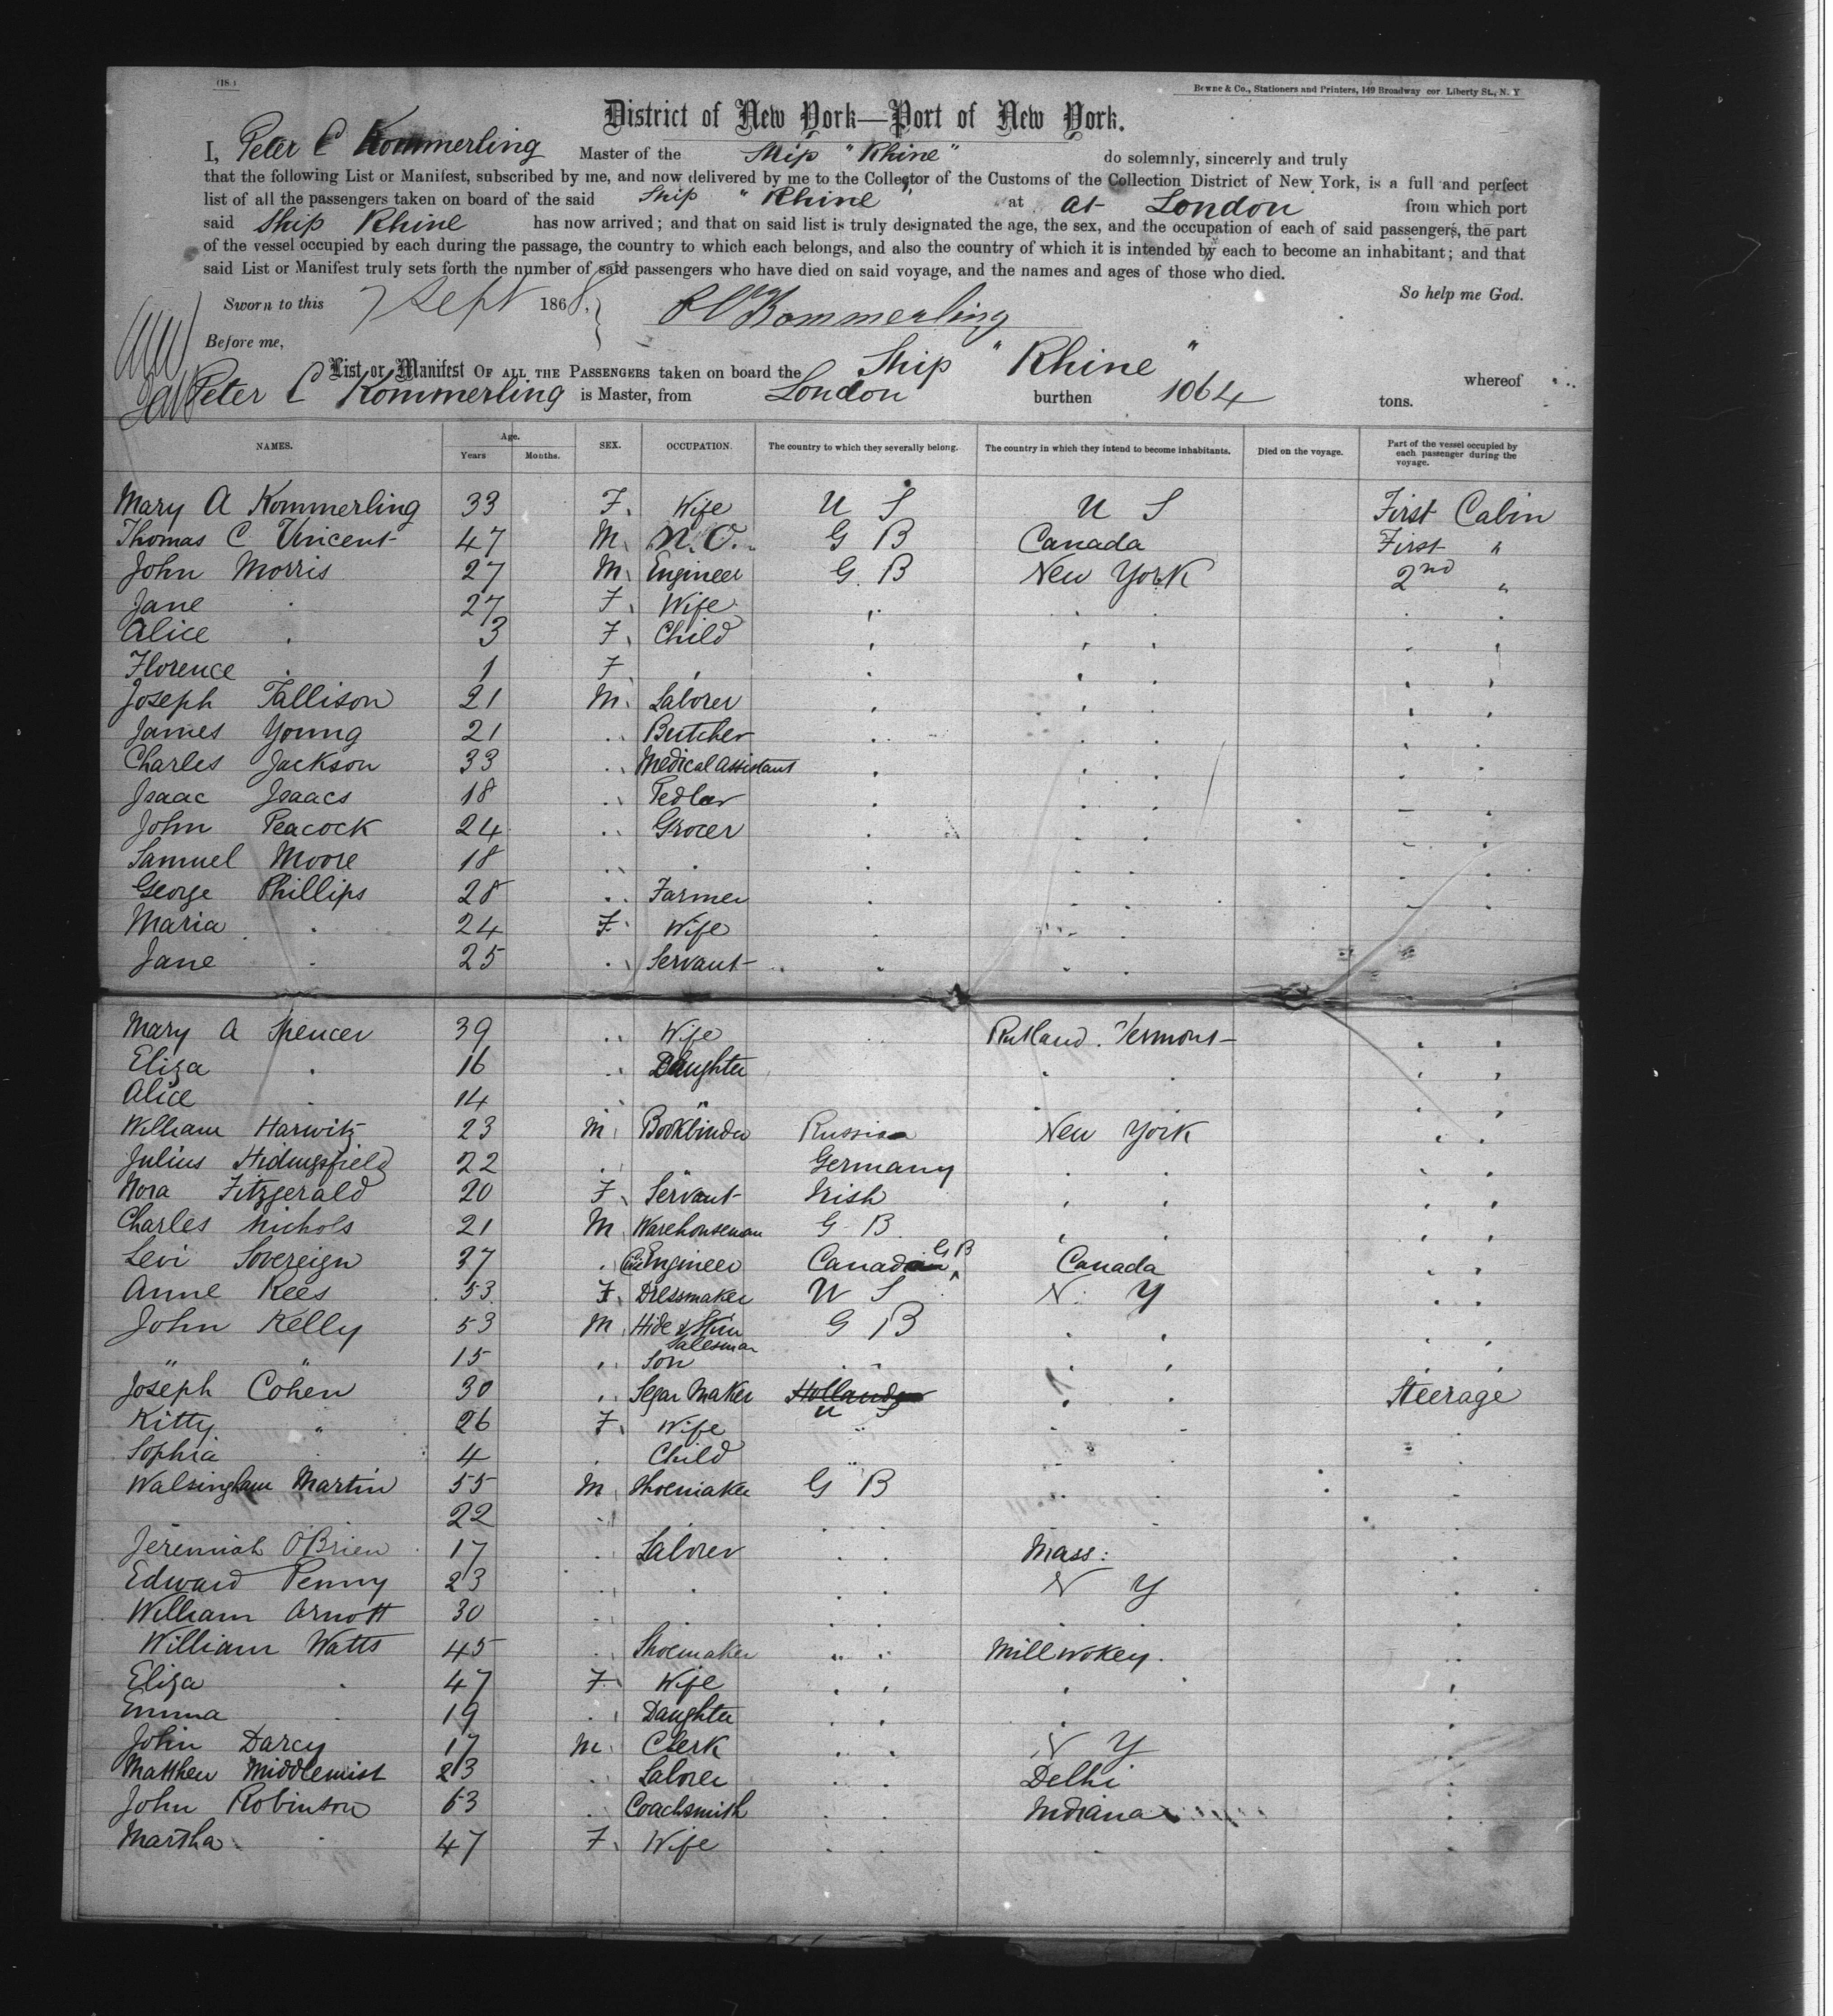 (18.)
Bowne & Co., Stationers and Printers, 149 Broadway cor. Liberty St., N. Y
District of New York—Port of New York.
I, Peter C Kommerling Master of the Ship "Rhine" do solemnly, sincerely and truly
that the following List or Manifest, subscribed by me, and now delivered by me to the Collector of the Customs of the Collection District of New York, is a full and perfect
list of all the passengers taken on board of the said Ship "Rhine" at at London from which port
said Ship Rhine has now arrived; and that on said list is truly designated the age, the sex, and the occupation of each of said passengers, the part
of the vessel occupied by each during the passage, the country to which each belongs, and also the country of which it is intended by each to become an inhabitant; and that
said List or Manifest truly sets forth the number of said passengers who have died on said voyage, and the names and ages of those who died.
So help me God.
Sworn to this 7 Sept 1868. P C Kommerling
Before me,
List or Manifest OF ALL THE PASSENGERS taken on board the Ship "Rhine" whereof
Peter C Kommerling is Master, from London burthen 1064 tons.
NAMES. Age. Years Months. SEX. OCCUPATION. The country to which they severally belong. The country in which they intend to become inhabitants. Died on the voyage. Part of the vessel occupied by each passenger during the voyage.
Mary A Kommerling 33 F. Wife U S U S First Cabin
Thomas C Vincent 47 M. N.O. G B Canada First "
John Morris 27 M. Engineer G. B New York 2nd "
Jane " 27 F. Wife " " " " "
Alice " 3 F. Child " " " " "
Florence " 1 F " " " " " "
Joseph Tallison 21 M. Laborer " " " " "
James Young 21 " Butcher " " " " "
Charles Jackson 33 " Medical Assistant " " " " "
Isaac Isaacs 18 " Pedlar " " " " "
John Peacock 24 " Grocer " " " " "
Samuel Moore 18 " " " " " " "
George Phillips 28 " Farmer " " " " "
Maria " 24 F. Wife " " " " "
Jane " 25 " Servant " " "
Mary A Spencer 39 " Wife Rutland. Vermont " "
Eliza " 16 " Daughter " " "
Alice " 14 " " " " "
William Harwitz 23 M. Bookbinder Russia New York " "
Julius Hidingsfield 22 " Germany " " " "
Nora Fitzgerald 20 F. Servant Irish " " " "
Charles Nichols 21 M Warehouseman G B " " " "
Levi Sovereign 37 " Civil Engineer Canadian G B Canada " "
Anne Rees 53 F. Dressmaker U S N. Y " "
John Kelly 53 M. Hide & Skin Salesman G B " " " "
" " 15 " Son " " " " " "
Joseph Cohen 30 " Segar Maker Holland U S " " Steerage
Kitty " 26 F. Wife " " " "
Sophia " 4 " Child " " " "
Walsingham Martin 55 M Shoemaker G B " " "
22 " " " " " "
Jeremiah O'Brien 17 " Laborer " " Mass: "
Edward Penny 23 " " " " N Y "
William Arnott 30 " " " " " "
William Watts 45 " Shoemaker " " Millwokey. "
Eliza " 47 F. Wife " " " "
Emma " 19 " Daughter " " " "
John Darcy 17 M. Clerk " " N Y "
Matthew Middlemist 23 " Laborer " " Delhi "
John Robinson 63 " Coachsmith " " Indiana "
Martha " 47 F. Wife " " " "